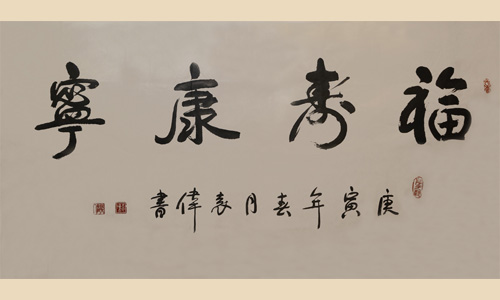 福壽康寧
庚寅年春月袁偉書